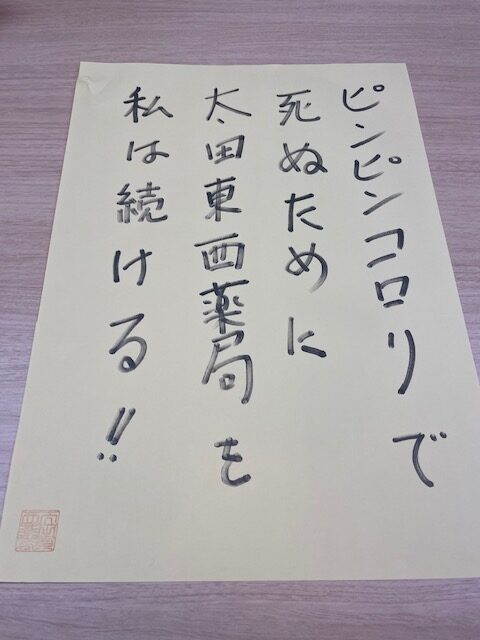 ピンピンコロリで
死ぬために
太田東西薬局を
私は続ける!!